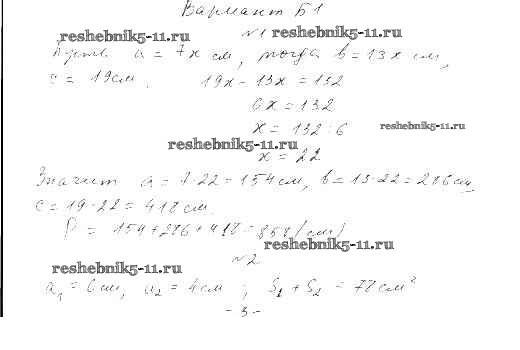 Вариант Б1
№1
reshebnik5-11.ru
reshebnik5-11.ru
Пусть a = 7x см, тогда b = 13x см,
c = 19см. 19x - 13x = 132
6x = 132
x = 132 : 6
reshebnik5-11.ru
reshebnik5-11.ru
x = 22
Значит a = 7·22 = 154 см, b = 13·22 = 286 см,
c = 19·22 = 418 см.
P = 154 + 286 + 418 = 858 (см)
reshebnik5-11.ru
№2
reshebnik5-11.ru
a₁ = 6 см, a₂ = 4 см ; S₁ + S₂ = 78 см²
- 3 -